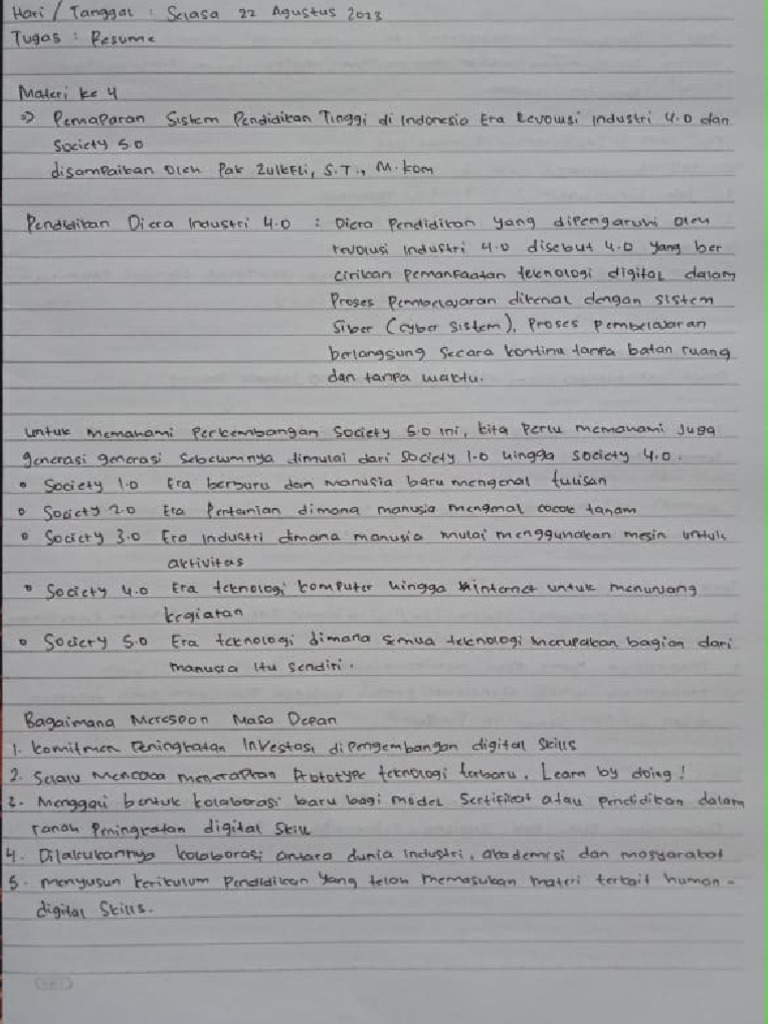 Hari / Tanggal : Selasa 22 Agustus 2023
Tugas : Resume
Materi ke 4
=> Pemaparan Sistem Pendidikan Tinggi di Indonesia Era Revolusi Industri 4.0 dan
Society 5.0
disampaikan oleh Pak Zulkfli, S.T., M.kom
Pendidikan Diera Industri 4.0 : Diera Pendidikan yang dipengaruhi oleh
revolusi industri 4.0 disebut 4.0 yang ber
cirikan pemanfaatan teknologi digital dalam
Proses Pembelajaran dikenal dengan sistem
Siber (cyber sistem), Proses pembelajaran
berlangsung secara kontinu tanpa batan ruang
dan tanpa waktu.
Untuk memahami Perkembangan Society 5.0 ini, kita Perlu memahami Juga
generasi generasi sebelumnya dimulai dari Society 1.0 hingga society 4.0.
• Society 1.0 Era berburu dan manusia baru mengenal tulisan
• Society 2.0 Era Pertanian dimana manusia mengenal cocok tanam
• Society 3.0 Era Industri dimana manusia mulai menggunakan mesin untuk
aktivitas
• Society 4.0 Era teknologi komputer hingga internet untuk menunjang
kegiatan
• Society 5.0 Era teknologi dimana semua teknologi merupakan bagian dari
manusia itu sendiri.
Bagaimana Merespon Masa Depan
1. Komitmen Peningkatan Investasi di pengembangan digital Skills
2. Selalu mencoba menerapkan Prototype teknologi terbaru, Learn by doing!
3. Menggali bentuk kolaborasi baru bagi model Sertifikat atau pendidikan dalam
ranah Peningkatan digital Skill
4. Dilakukannya kolaborasi antara dunia Industri, akademisi dan masyarakat
5. menyusun kerikulum Pendidikan yang telah memasukan materi terkait human-
digital Skills.